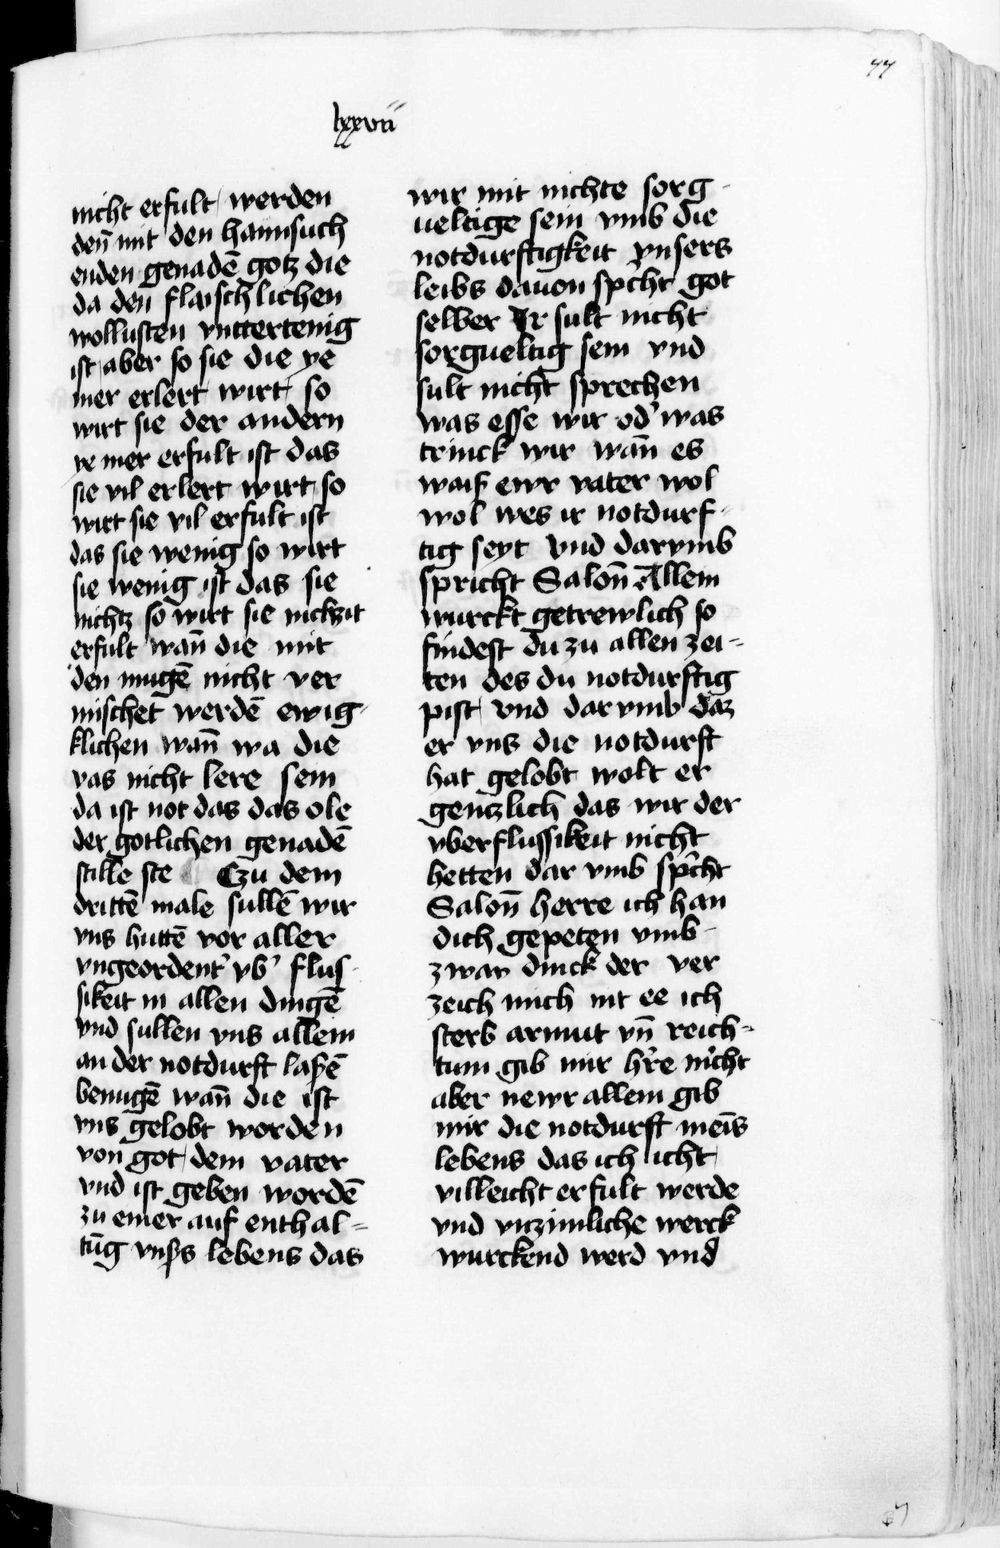 77
lxxvii
nicht erfult werden
den̄ mit den haimsuch
enden genadē gotz die
da den flaischlichen
wollusten vntertenig
ist aber so sie die ye
mer erlert wirt so
wirt sie der andern
ye mer erfult ist das
sie vil erlert wirt so
wirt sie vil erfult ist
das sie wenig so wirt
sie wenig ist das sie
nichtz so wirt sie nichzit
erfult wan̄ die mit
den mugē nicht ver
mischet werdē ewig-
klichen wan̄ wa die
vas nicht lere sein
da ist not das das ole
der gotlichen genadē
stille ste Czu dem
drittē male sullē wir
vns huttē vor aller
vngeordent' vb' flus-
sikeit in allen dingē
vnd sullen vns allein
an der notdurft laßē
benugē wan̄ die ist
vns gelobt worden
von got dem vater
vnd ist geben wordē
zu einer auf enthal=
tūg vnsßs lebens das
wir mit nichte sorg-
ueltige sein vmb die
notdurftigkeit vnsers
leibs dauon spcht got
selber Ir sult nicht
sorgueltig sein vnd
sult nicht sprechen
was esse wir od' was
trinck wir wan̄ es
waiß ewr vater wol
wol wes ir notdurf-
tig seyt vnd darvmb
spricht Salon̄ Allein
wurckt getrewlich so
findest du zu allen zei-
ten des du notdurftig
pist vnd darvmb daz
er vns die notdurft
hat gelobt wolt er
gentzlich das wir der
vberflussikeit nicht
hetten dar vmb spcht
Salon̄ herre ich han
dich gepeten vmb-
zwar dinck der ver
zeich mich nit ee ich
sterb armut vn̄ reich-
tum gib mir hr̄e nicht
aber newr allein gib
mir die notdurft meīs
lebens das ich icht
villeicht erfult werde
vnd vnzimliche werck
wurckend werd vnd